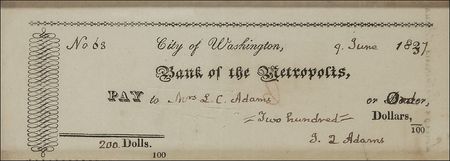 No 68 City of Washington, 9. June 1837.
Bank of the Metropolis,
PAY to Mrs L. C. Adams or Order,
=Two hundred= Dollars,
200 Dolls. 100 J. Q Adams
100